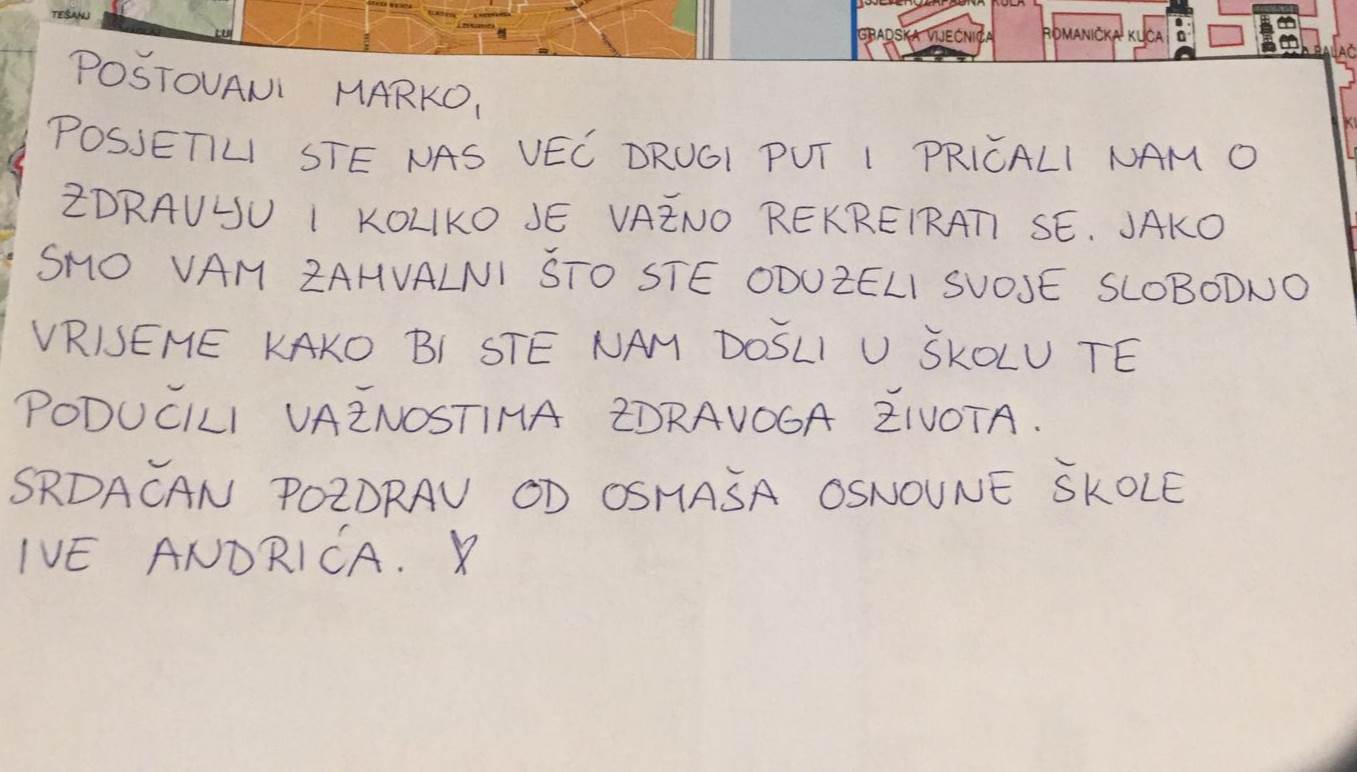 TEŠANJ
GRADSKA VIJEĆNICA
ROMANIČKA KUĆA
POŠTOVANI MARKO,
POSJETILI STE NAS VEĆ DRUGI PUT I PRIČALI NAM O
ZDRAVLJU I KOLIKO JE VAŽNO REKREIRATI SE. JAKO
SMO VAM ZAHVALNI ŠTO STE ODUZELI SVOJE SLOBODNO
VRIJEME KAKO BI STE NAM DOŠLI U ŠKOLU TE
PODUČILI VAŽNOSTIMA ZDRAVOGA ŽIVOTA.
SRDAČAN POZDRAV OD OSMAŠA OSNOVNE ŠKOLE
IVE ANDRIĆA.